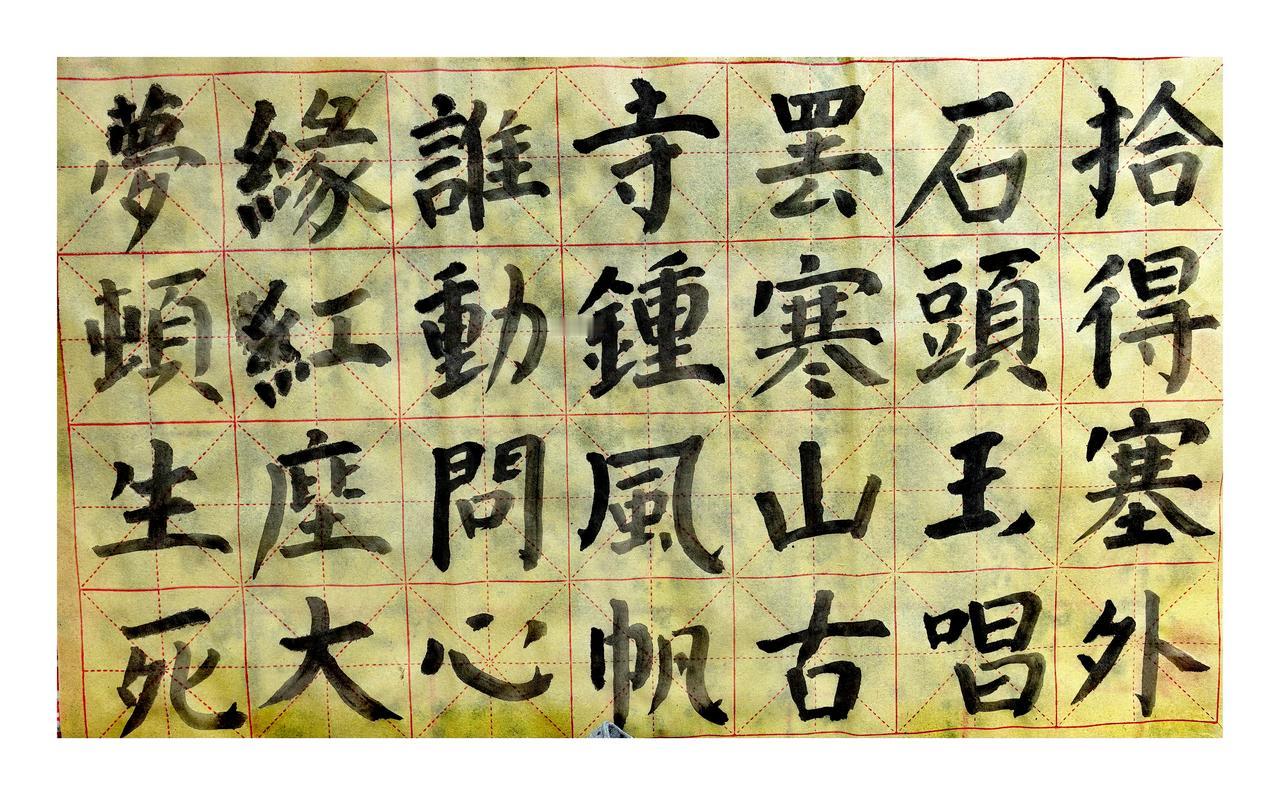 拾得塞外
石頭玉唱
罢寒山古
寺鍾風帆
誰動問心
緣紅座大
夢頓生死